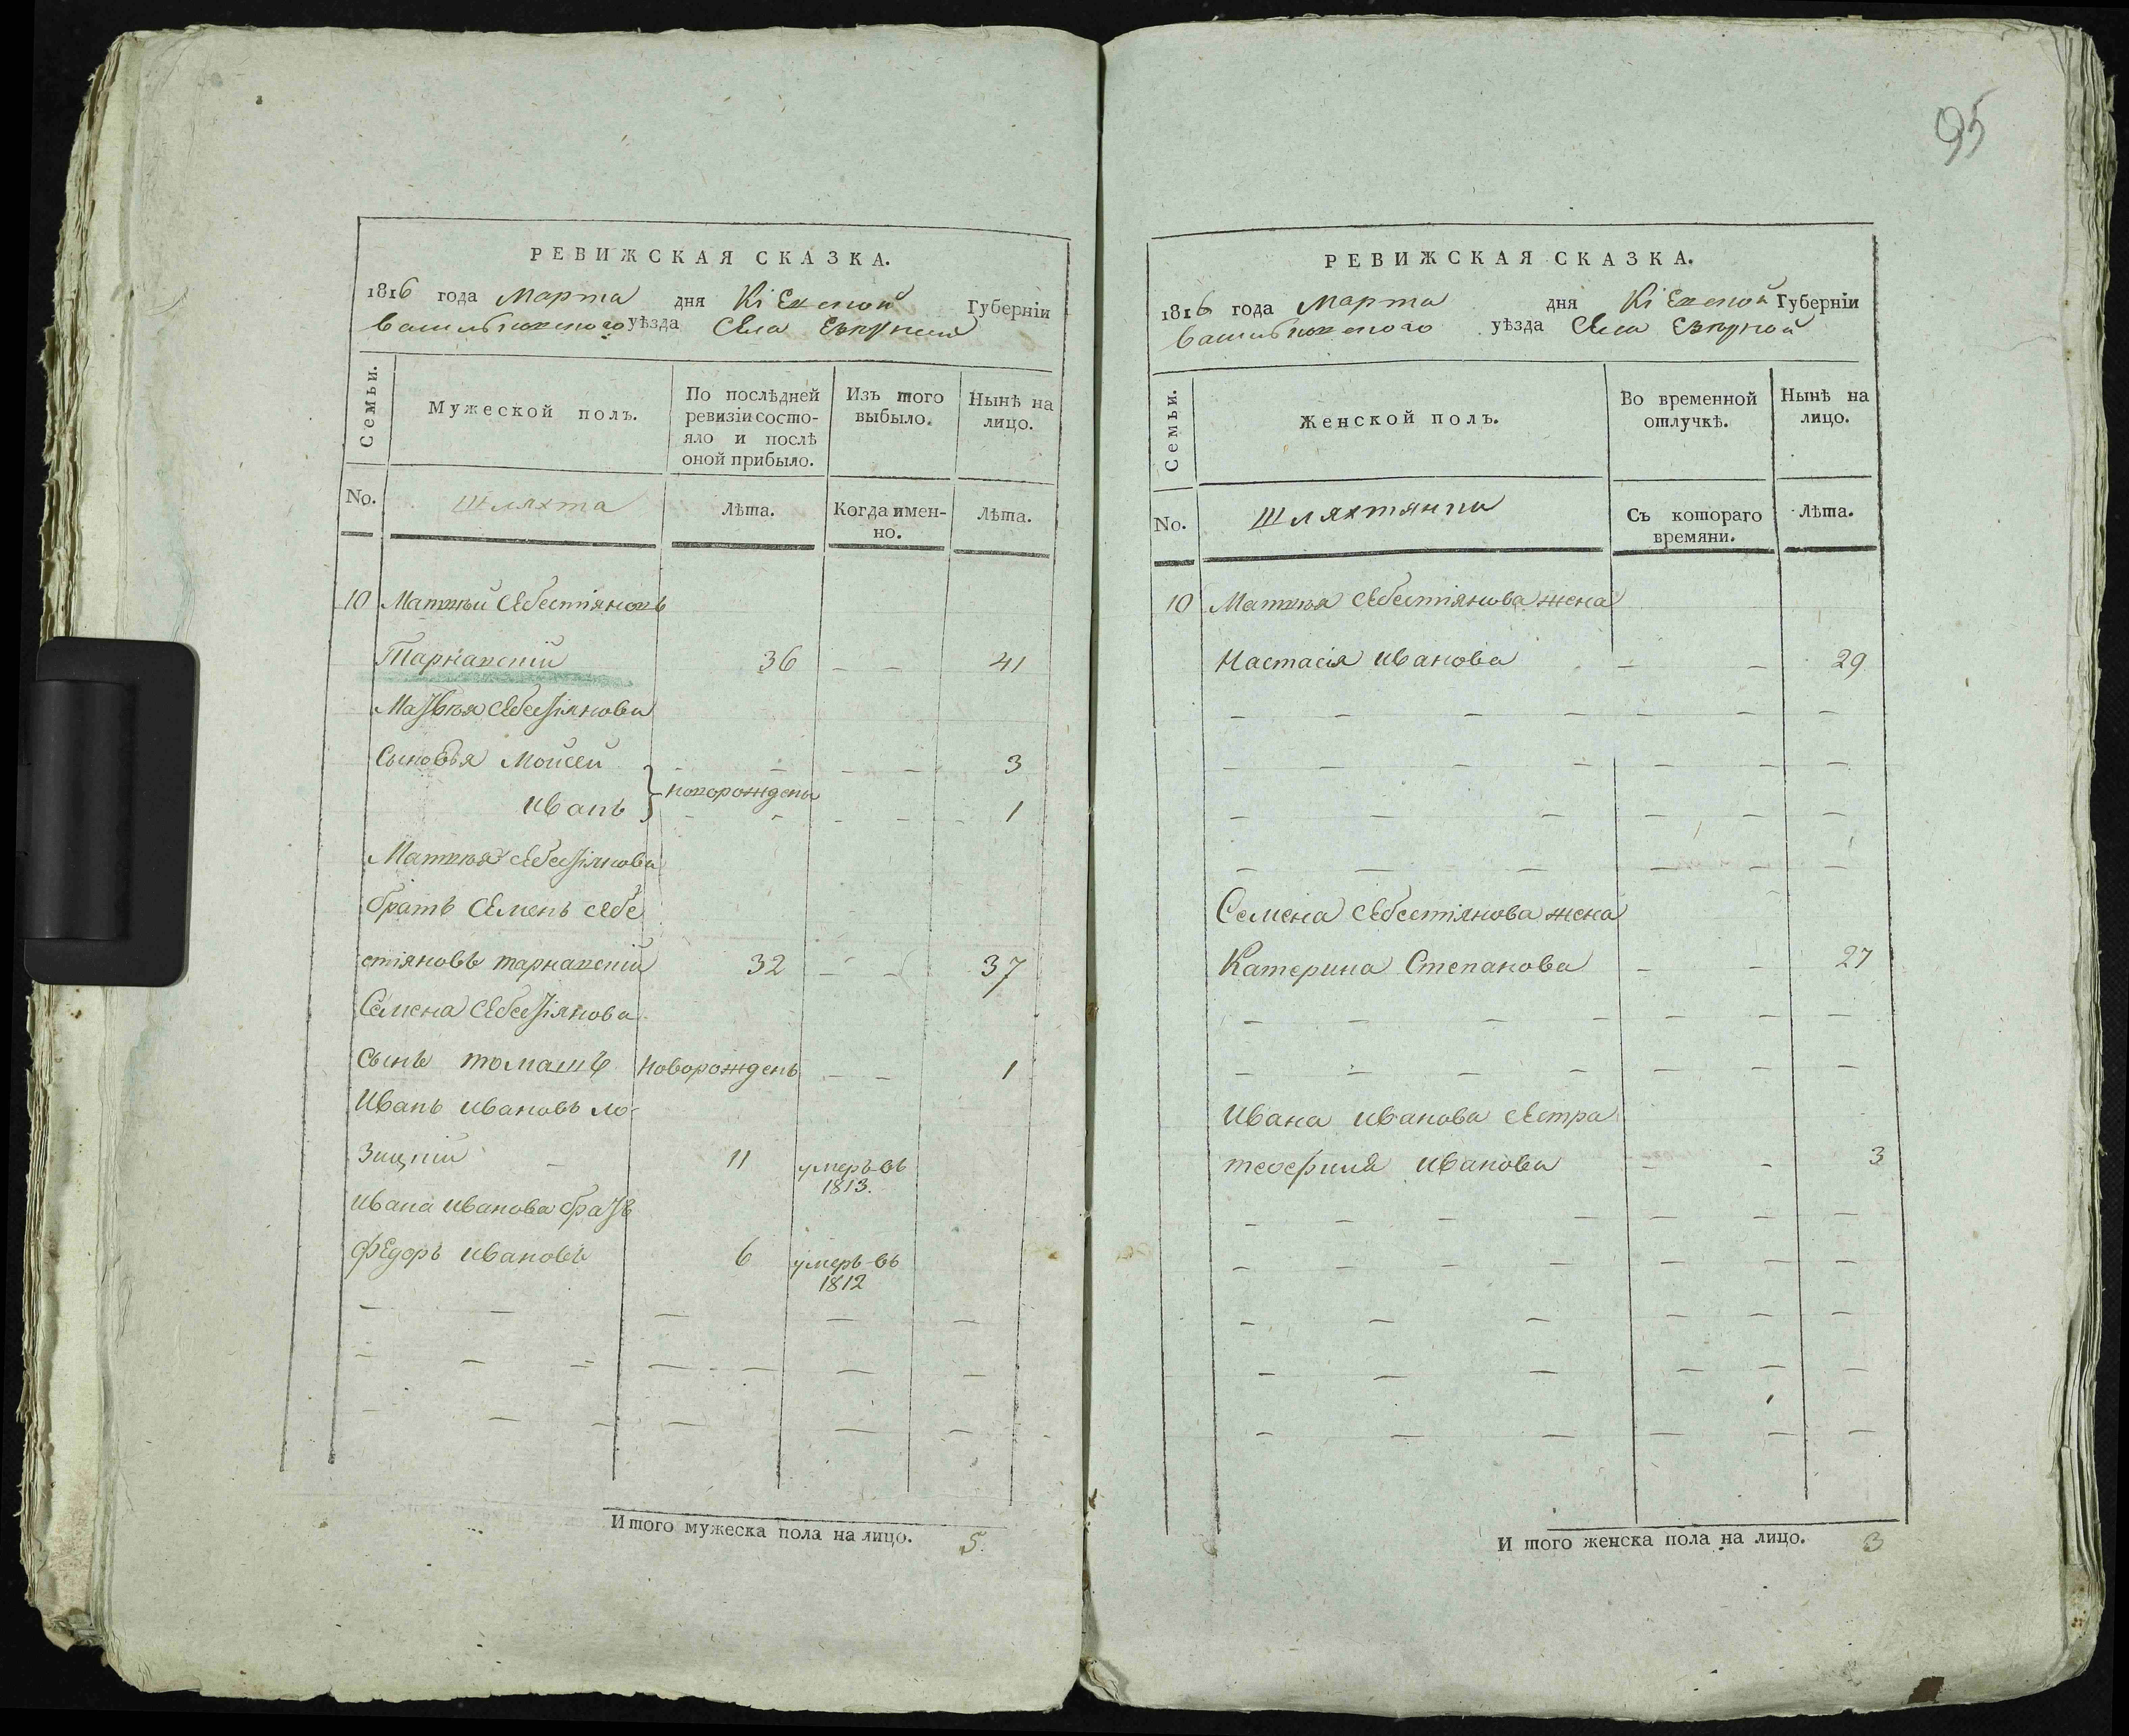 РЕВИЖСКАЯ СКАЗКА.
1816 года Марта дня Кіевской Губерніи
Васильковского уѣзда Села
Семьи.
Мужеской полъ.
По послѣдней ревизіи состояло и послѣ оной прибыло.
Изъ того выбыло.
Нынѣ на лицо.
No.
Шляхта
Лѣта.
Когда именно.
Лѣта.
10 Матвѣй Себестіяновъ
Тарнавскій 36 — — 41
Матвѣя Себестіянова
Сыновья Мойсей — — — — 3
новорождены
Иванъ — — — — 1
Матвѣя Себестіянова
братъ Семенъ Себе
стіяновъ тарнавскій 32 — — 37
Семена Себестіянова
Сынъ томашъ новорожденъ — — 1
Иванъ Ивановъ Ло-
зицкій — 11 умеръ въ 1813.
Ивана Иванова братъ
Федоръ Ивановъ 6 умеръ въ 1812
Итого мужеска пола на лицо. 5.
95
РЕВИЖСКАЯ СКАЗКА.
1816 года Марта дня Кіевской Губерніи
Васильковского уѣзда Села
Семьи.
Женской полъ.
Во временной отлучкѣ.
Нынѣ на лицо.
No.
Шляхтянки
Съ котораго времяни.
Лѣта.
10 Матвѣя Себестіянова жена
Настасія Иванова — — 29
Семена Себестіянова жена
Катерина Степанова — — 27
Ивана Иванова Сестра
теофиля Иванова — — 3
И того женска пола на лицо. 3